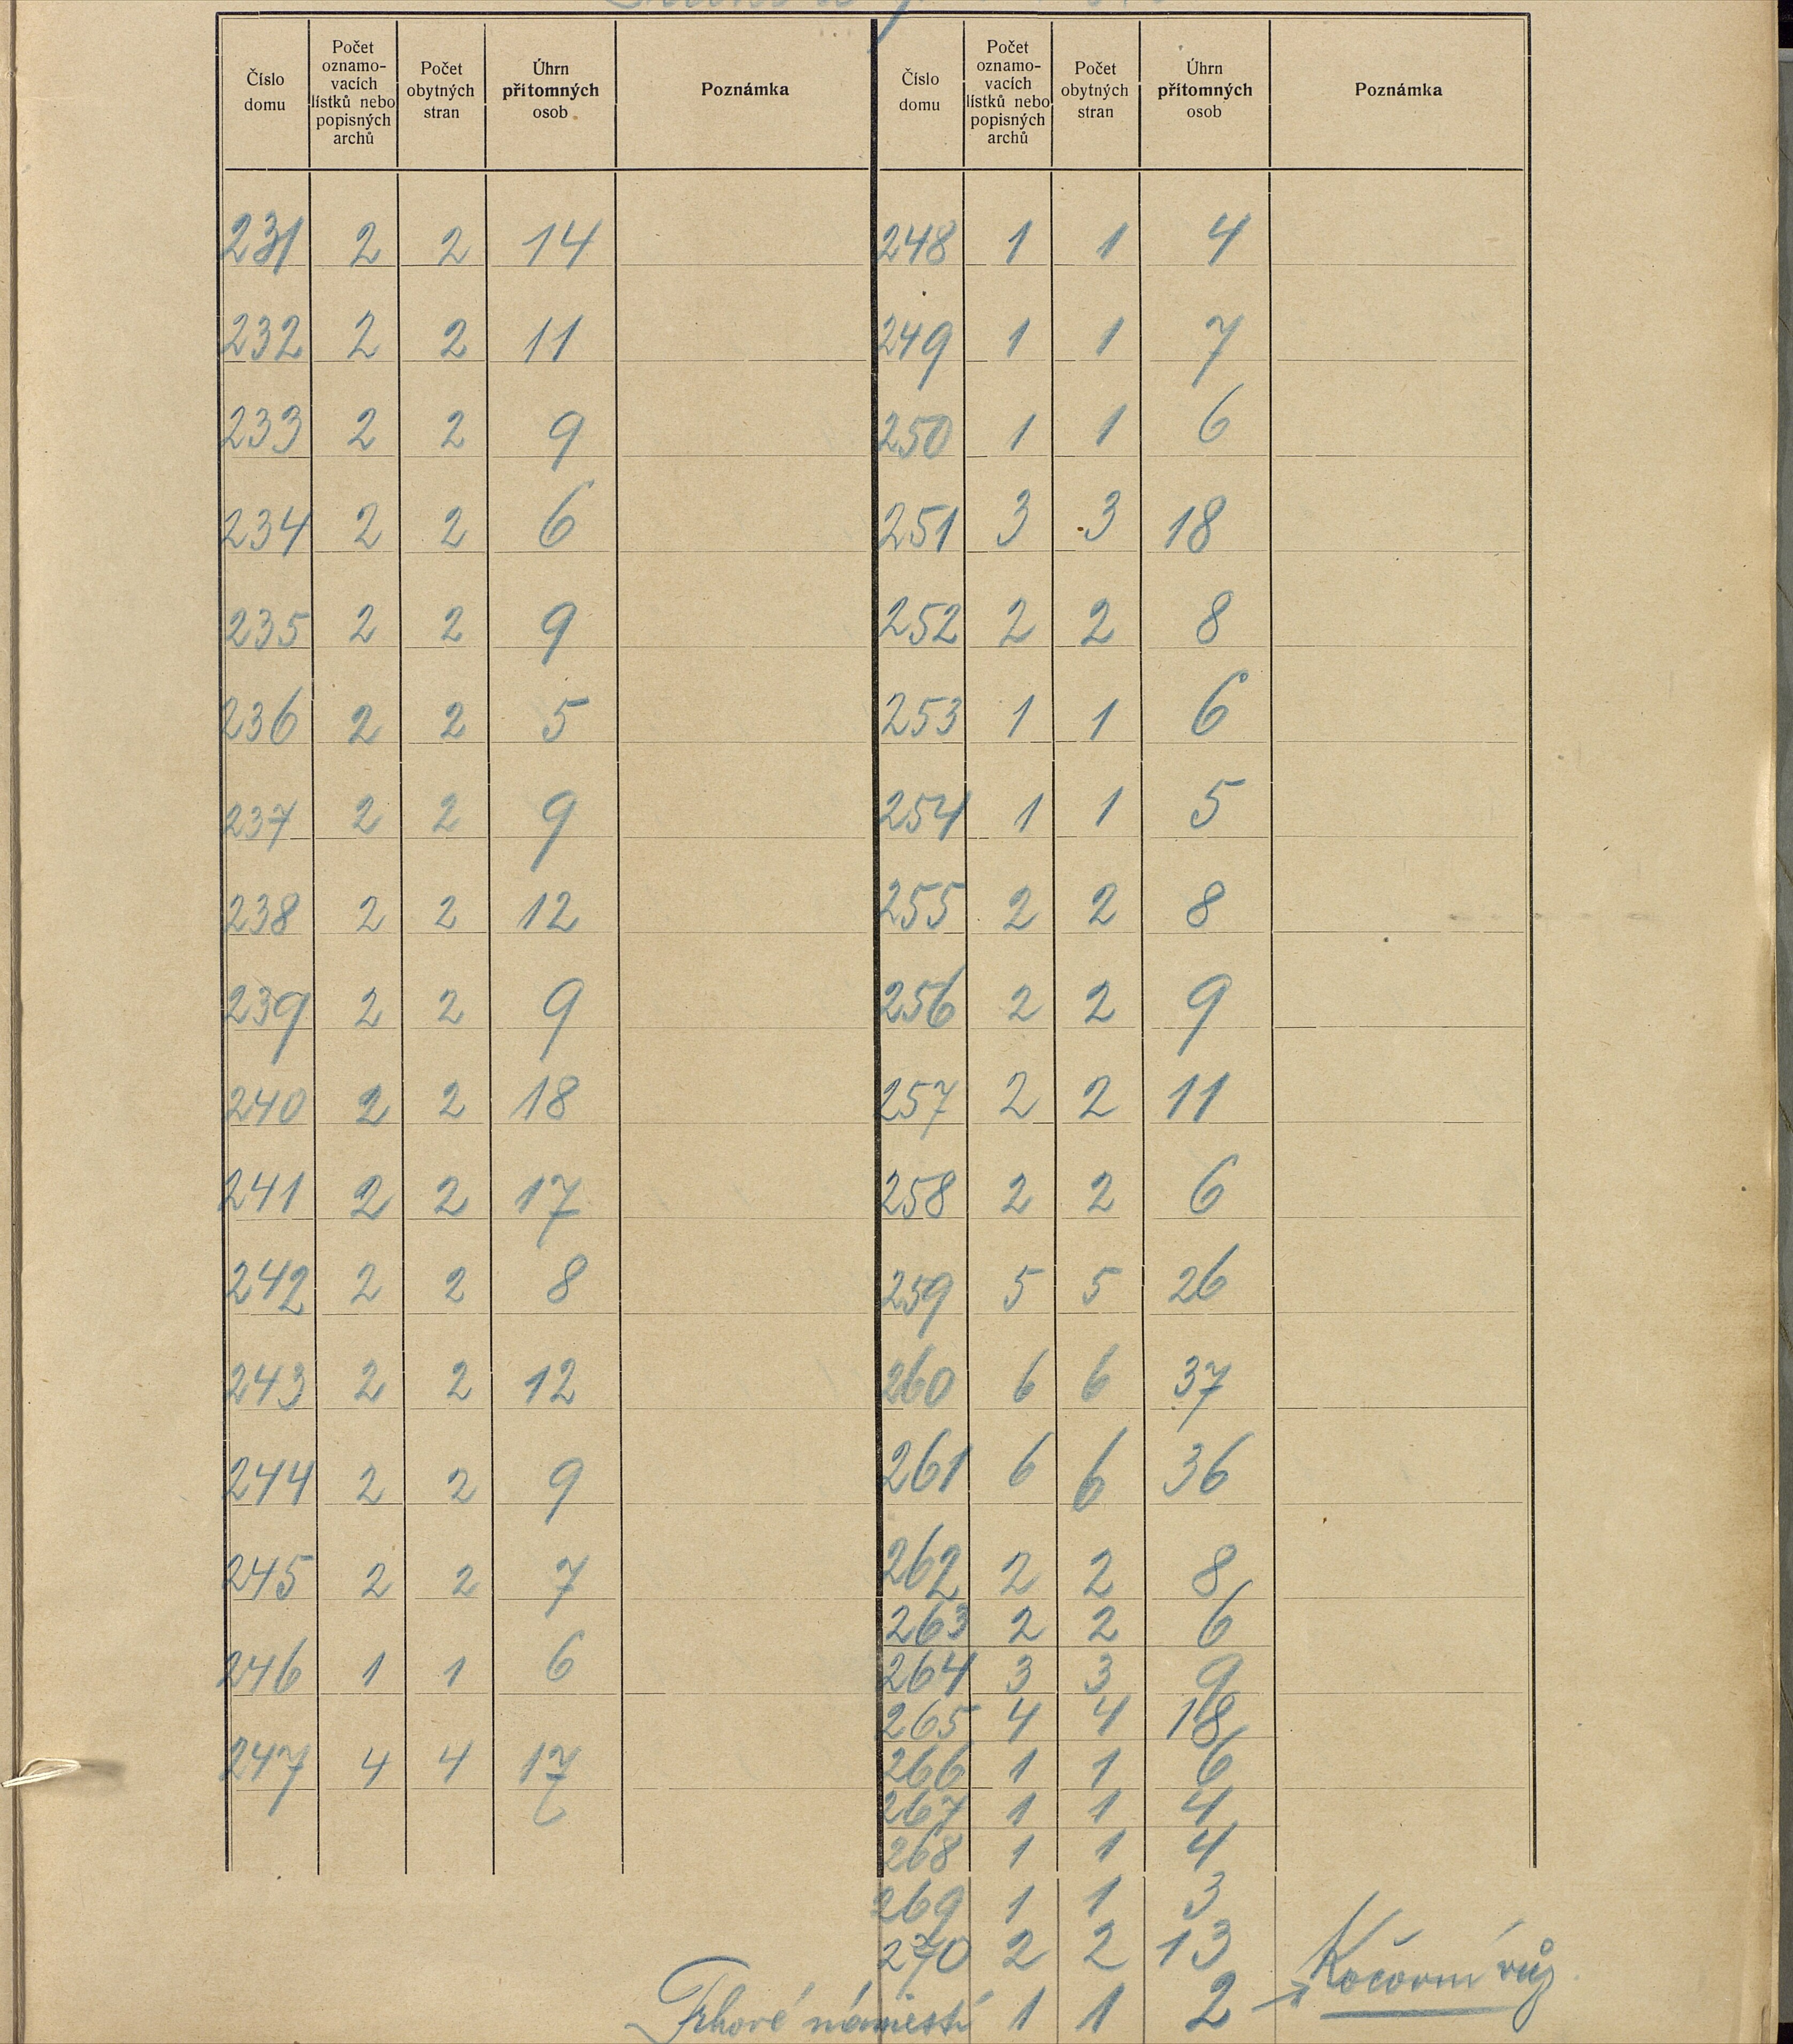 Číslo domu | Počet oznamovacích lístků nebo popisných archů | Počet obytných stran | Úhrn přítomných osob | Poznámka | Číslo domu | Počet oznamovacích lístků nebo popisných archů | Počet obytných stran | Úhrn přítomných osob | Poznámka
231 2 2 14
232 2 2 11
233 2 2 9
234 2 2 6
235 2 2 9
236 2 2 5
237 2 2 9
238 2 2 12
239 2 2 9
240 2 2 18
241 2 2 17
242 2 2 8
243 2 2 12
244 2 2 9
245 2 2 7
246 1 1 6
247 4 4 17
248 1 1 4
249 1 1 7
250 1 1 6
251 3 3 18
252 2 2 8
253 1 1 6
254 1 1 5
255 2 2 8
256 2 2 9
257 2 2 11
258 2 2 6
259 5 5 26
260 6 6 37
261 6 6 36
262 2 2 8
263 2 2 6
264 3 3 9
265 4 4 18
266 1 1 6
267 1 1 4
268 1 1 4
269 1 1 3
270 2 2 13
Trhové náměstí 1 1 2 → Kočovní vůz